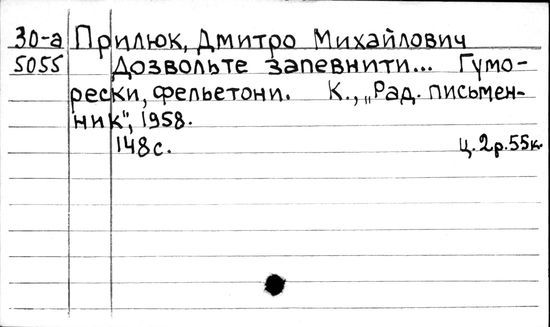 30-а Прилюк, Дмитро Михайлович
5055 Дозвольте запевнити... Гумо-
рески, фельетони. К., „Рад. письмен-
ник", 1958.
148с. ц. 2р.55к.